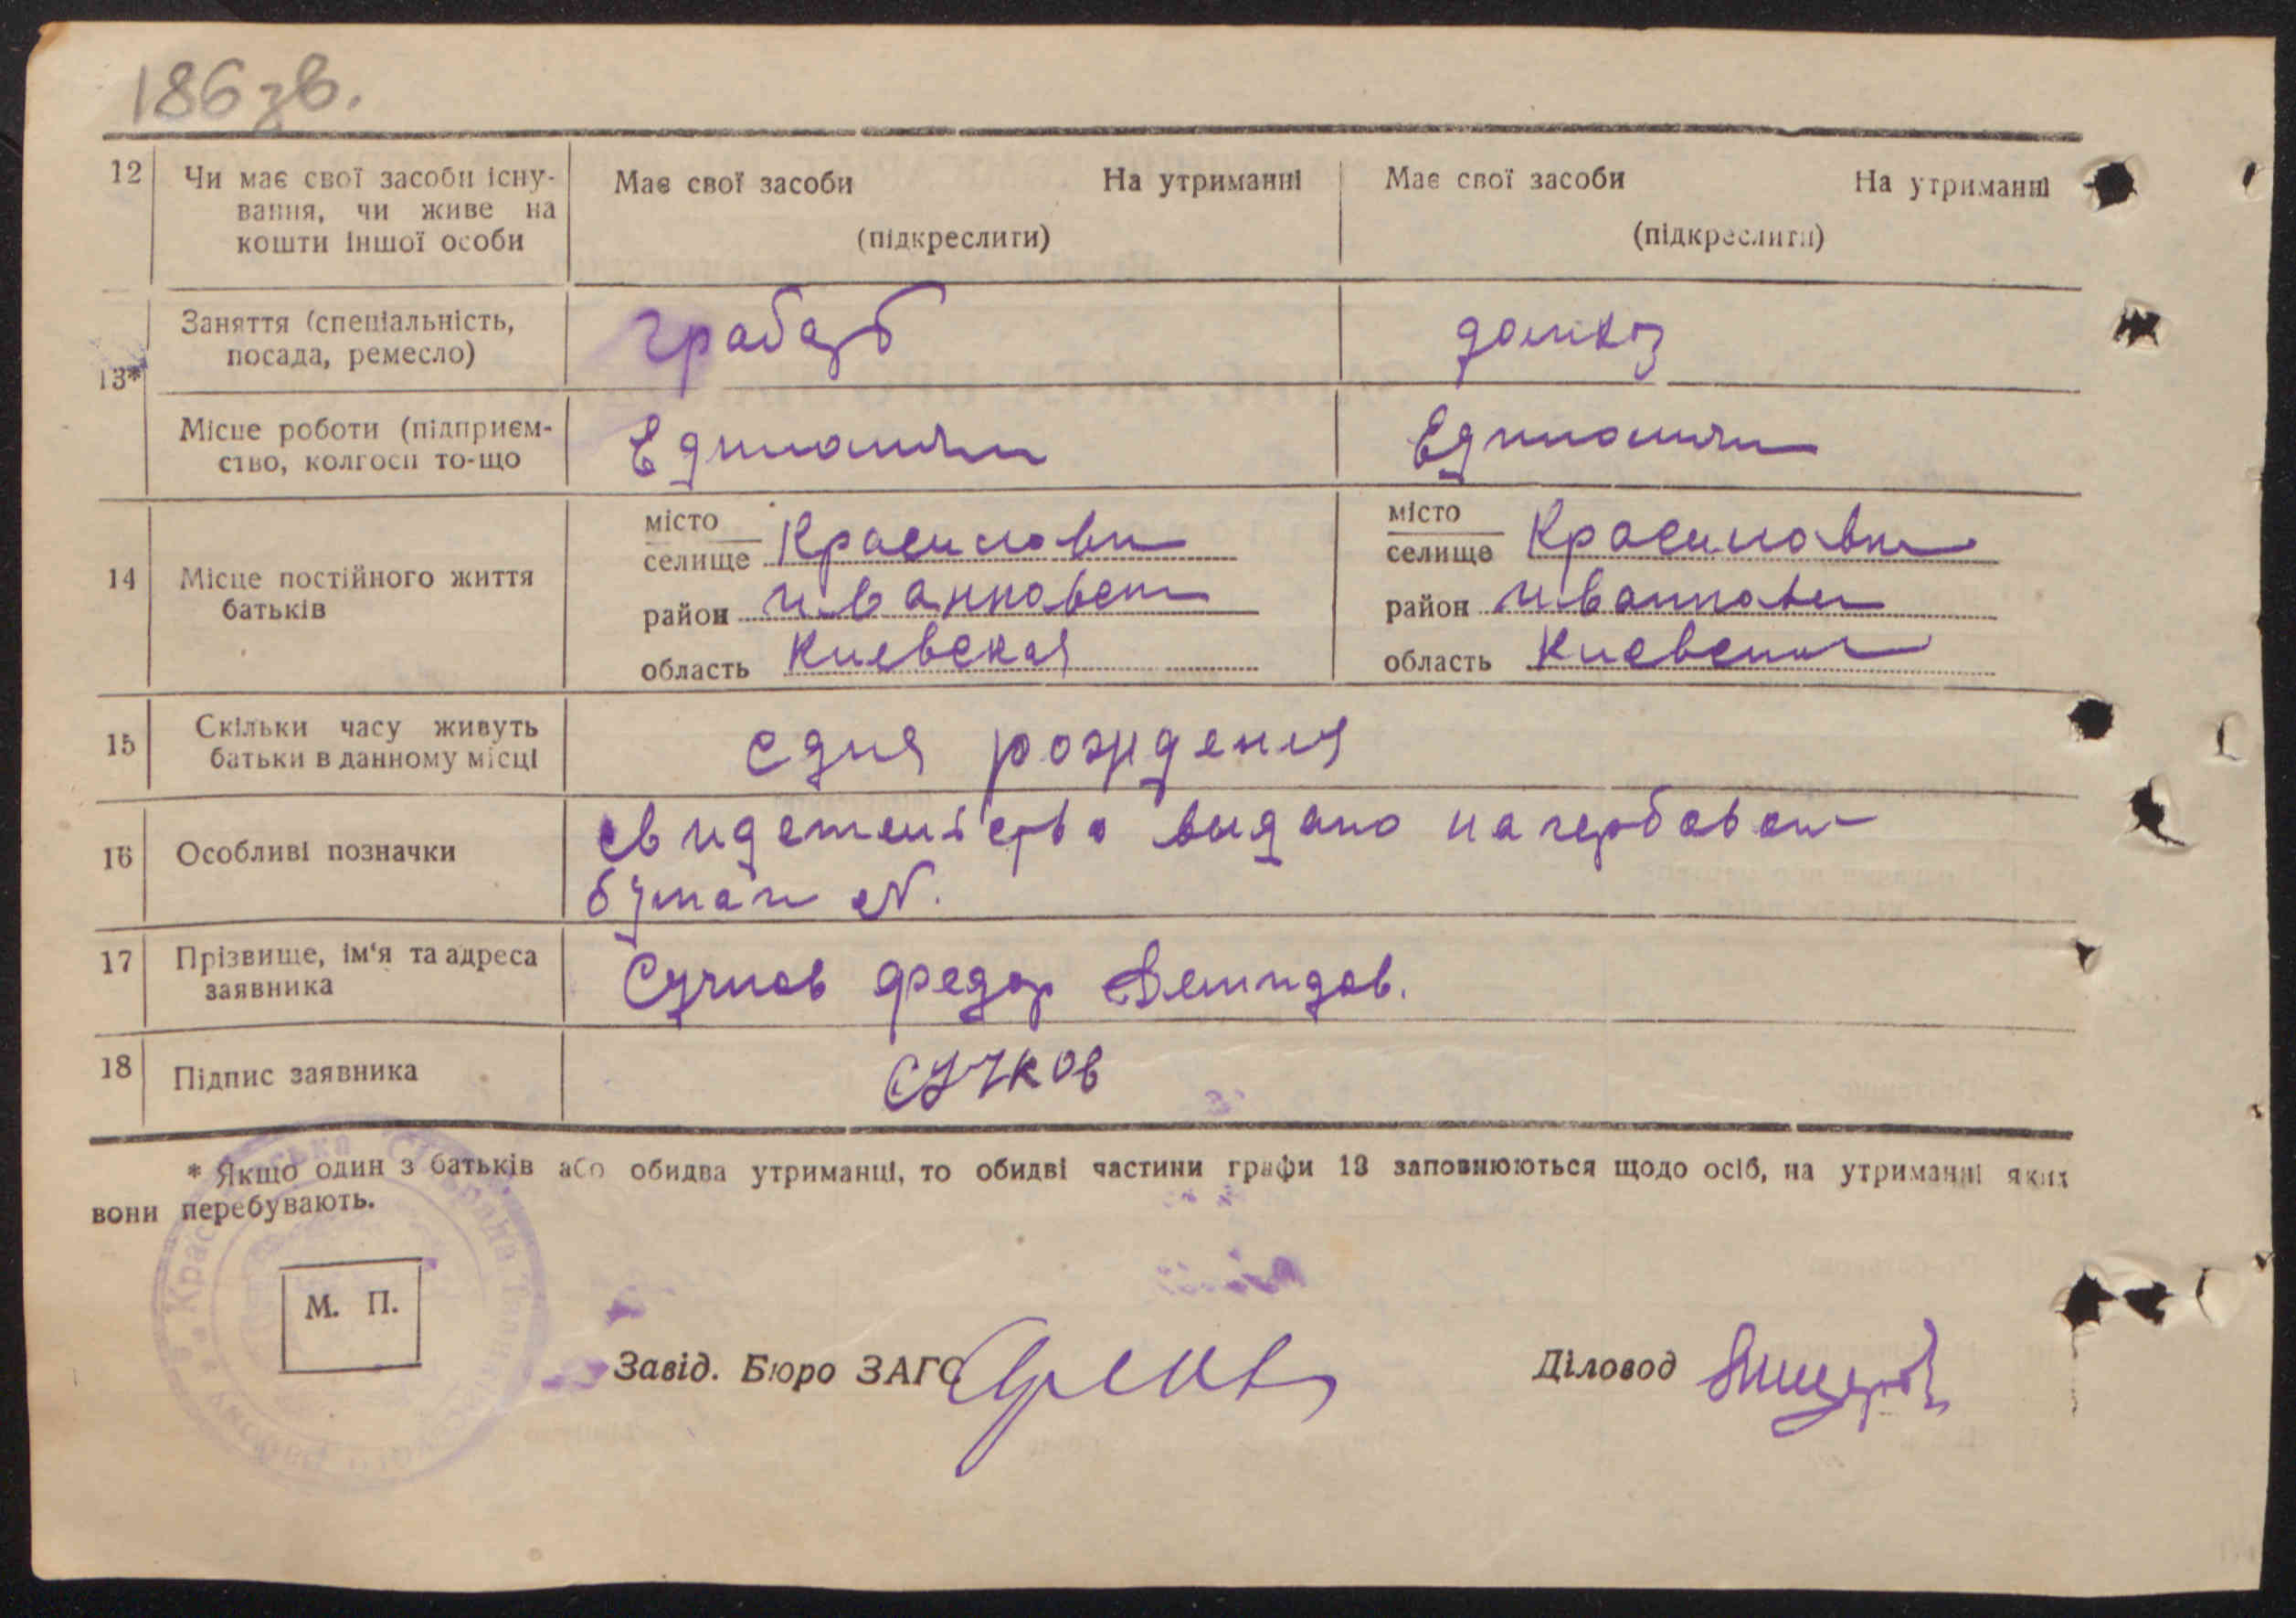 186 зв.
12 Чи має свої засоби існу-
вання, чи живе на
кошти іншої особи
Має свої засоби На утриманні
(підкреслити)
Має свої засоби На утриманні
(підкреслити)
13*
Заняття (спеціальність,
посада, ремесло)
грабарь
домхоз
Місце роботи (підприєм-
ство, колгосп то-що
Единолични
Единолични
14 Місце постійного життя
батьків
місто
селище Красиловки
район Иванковск
область Киевская
місто
селище Красиловки
район Иванковск
область Киевская
15 Скільки часу живуть
батьки в данному місці
с дня рождения
16 Особливі позначки
свидетельство выдано на гербовой
бумаги №.
17 Прізвище, ім'я та адреса
заявника
Сучков Федор Демидов.
18 Підпис заявника
Сучков
* Якщо один з батьків або обидва утриманці, то обидві частини графи 13 заповнюються щодо осіб, на утриманні яких
вони перебувають.
М. П.
Завід. Бюро ЗАГС
Діловод